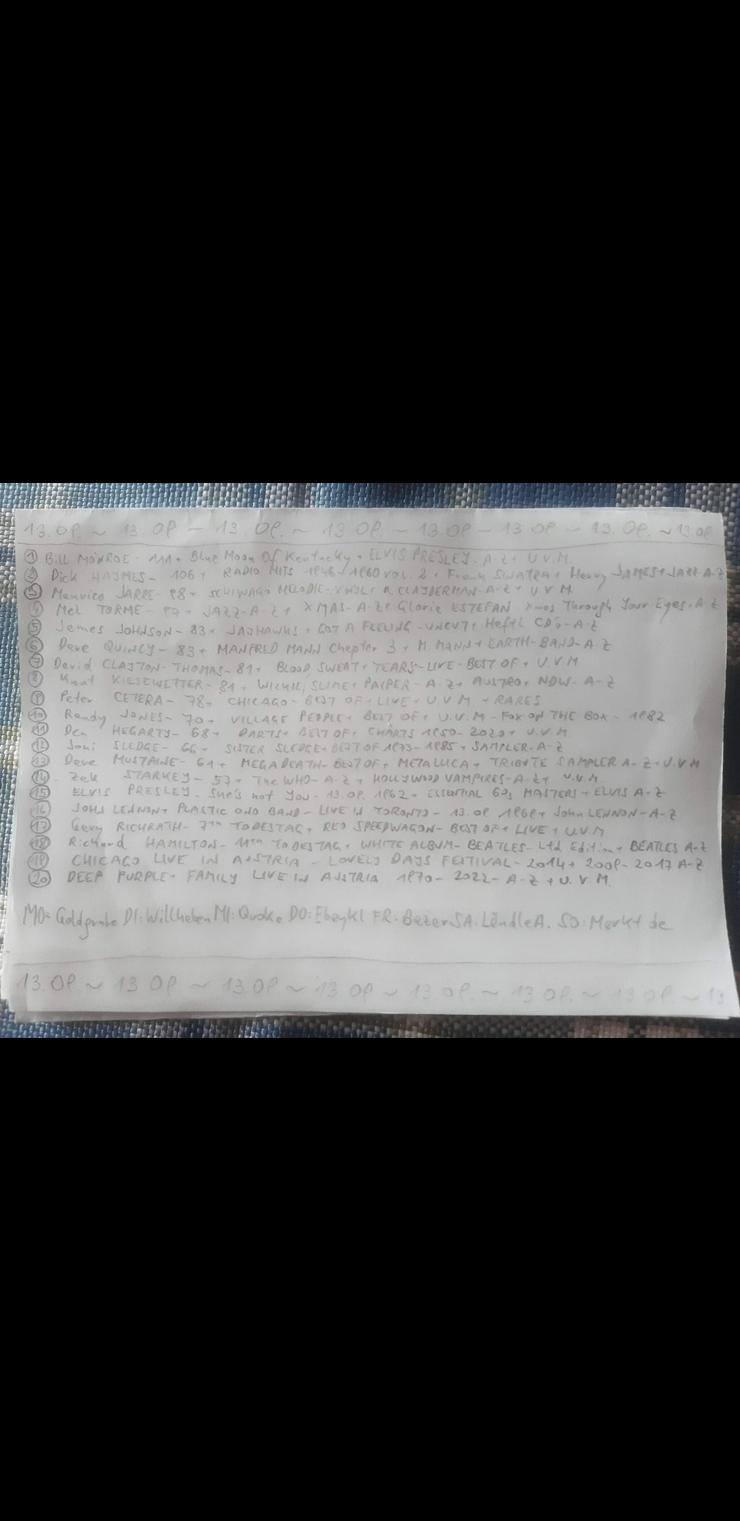 13.09. ~ 13.09 - 13.09. ~ 13.09 - 13.09 - 13.09 - 13.09. ~ 13.09
① Bill MONROE - 111 + Blue Moon Of Kentucky + ELVIS PRESLEY - A-Z + U.V.M.
② Dick HAYMES - 106 + RADIO HITS 1946-1960 VOL. 2 + Frank SINATRA + Henry JAMES + JAZZ A-Z
③ Maurice JARRE - 98 + SCHIWAGO MELODIE - R. CLAYDERMAN - A-Z + U V M
④ Mel TORME - 97 + JAZZ - A-Z + XMAS - A-Z + Gloria ESTEFAN Xmas Through Your Eyes + A-Z
⑤ James JOHNSON - 83 + JAYHAWKS + GOT A FEELING - UNCUT + Heftl CD's - A-Z
⑥ Dave QUINCY - 83 + MANFRED MANN Chapter 3 + M. MANN + EARTH - BAND - A-Z
⑦ David CLAYTON - THOMAS - 81 + BLOOD SWEAT + TEARS - LIVE - BEST OF + U.V.M
⑧ Knut KIESEWETTER - 81 + WICKIE, SLIME + PAIPER - A-Z + AUSTRO + NDW - A-Z
⑨ Peter CETERA - 78 + CHICAGO - BEST OF + LIVE + U.V.M + RARES
⑩ Randy JONES - 70 + VILLAGE PEOPLE + BEST OF + U.V.M - FOX ON THE BOX - 1982
⑪ Den HEGARTY - 68 + DARTS + BEST OF + CHARTS 1950-2020 + U.V.M
⑫ Joni SLEDGE - 66 + SISTER SLEDGE + BEST OF 1973-1985 + SAMPLER - A-Z
⑬ Dave MUSTAINE - 61 + MEGADEATH - BEST OF + METALLICA + TRIBUTE SAMPLER A-Z + U.V.M
⑭ Zak STARKEY - 57 + The WHO - A-Z + HOLLYWOOD VAMPIRES - A-Z + U.V.M.
⑮ ELVIS PRESLEY - She's not You - 13.09.1962 + ESSENTIAL 60s MASTERS + ELVIS A-Z
⑯ JOHN LENNON + PLASTIC ONO BAND - LIVE IN TORONTO - 13.09.1969 + John LENNON - A-Z
⑰ Gary RICHRATH - 7TH TODESTAG + REO SPEEDWAGON - BEST OF + LIVE + U.V.M
⑱ Richard HAMILTON - 11TH TODESTAG + WHITE ALBUM - BEATLES - Ltd Edition + BEATLES A-Z
⑲ CHICAGO LIVE IN AUSTRIA - LOVELY DAYS FESTIVAL - 2014 + 2009 - 2017 A-Z
⑳ DEEP PURPLE + FAMILY LIVE IN AUSTRIA 1970 - 2022 - A-Z + U.V.M.
MO: Goldgrube DI: Willhaben MI: Quoka DO: Ebaykl FR: Bazar SA: LändleA. SO: Markt de
13.09 ~ 13.09 ~ 13.09 ~ 13.09 ~ 13.09 ~ 13.09. ~ 13.09 ~ 13